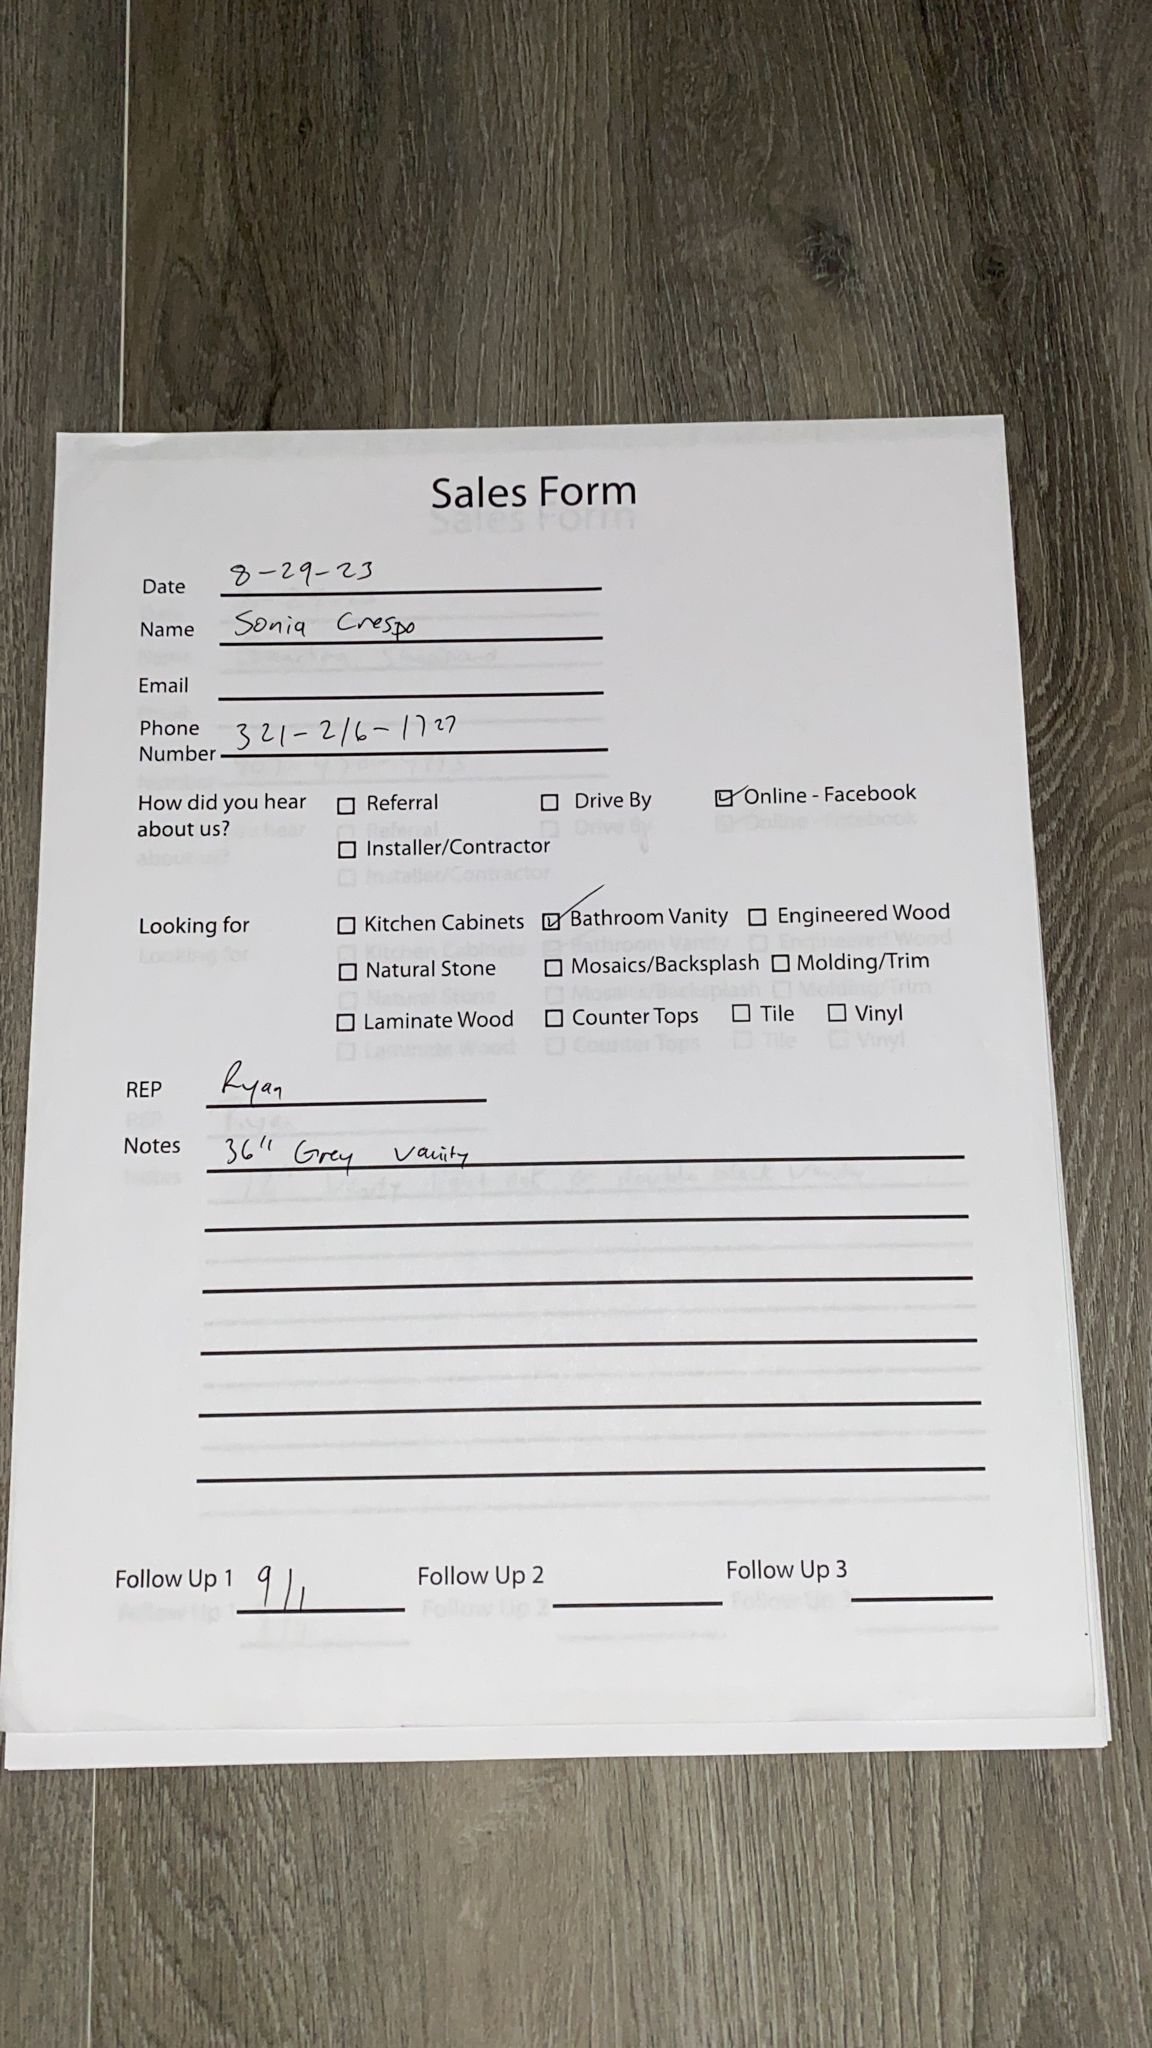 Sales Form
Date 8-29-23
Name Sonia Crespo
Email
Phone
Number 321-216-1727
How did you hear
about us?
☐ Referral ☐ Drive By ☑ Online - Facebook
☐ Installer/Contractor
Looking for ☐ Kitchen Cabinets ☑ Bathroom Vanity ☐ Engineered Wood
☐ Natural Stone ☐ Mosaics/Backsplash ☐ Molding/Trim
☐ Laminate Wood ☐ Counter Tops ☐ Tile ☐ Vinyl
REP Ryan
Notes 36" Grey Vanity
Follow Up 1 9/1 Follow Up 2 Follow Up 3